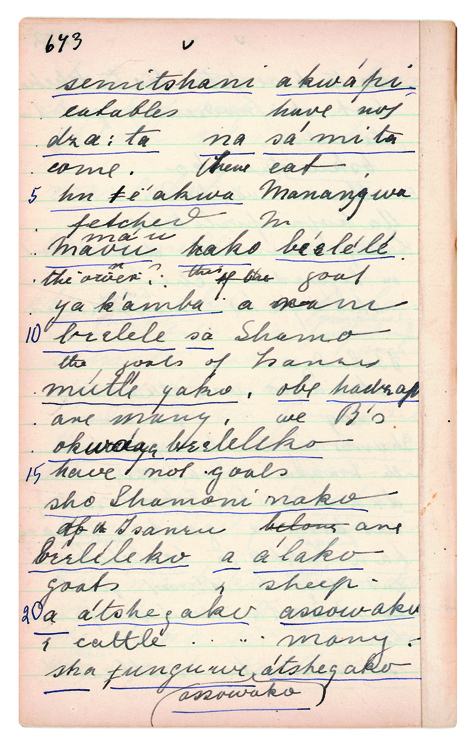 643
semitshani akwápi
eatables have not
dza: ta na sá mi ta
come. There eat
5 hn té akwa Manangwa
fetched M
máu
mavu kako beelélé
the owner? this of the goat
ya kámba a
10 beelele sa Shamo
the goats of Isanzu
mutle yako, obe hadzap
are many, we B's
beeleleko
15 have not goats
sho Shamoni nako
of the Isanzu belong are
beeléleko a álako
goats & sheep.
20 a átshegako assowako
& cattle " " many.
sha fungurwe átshegako
(assowako)